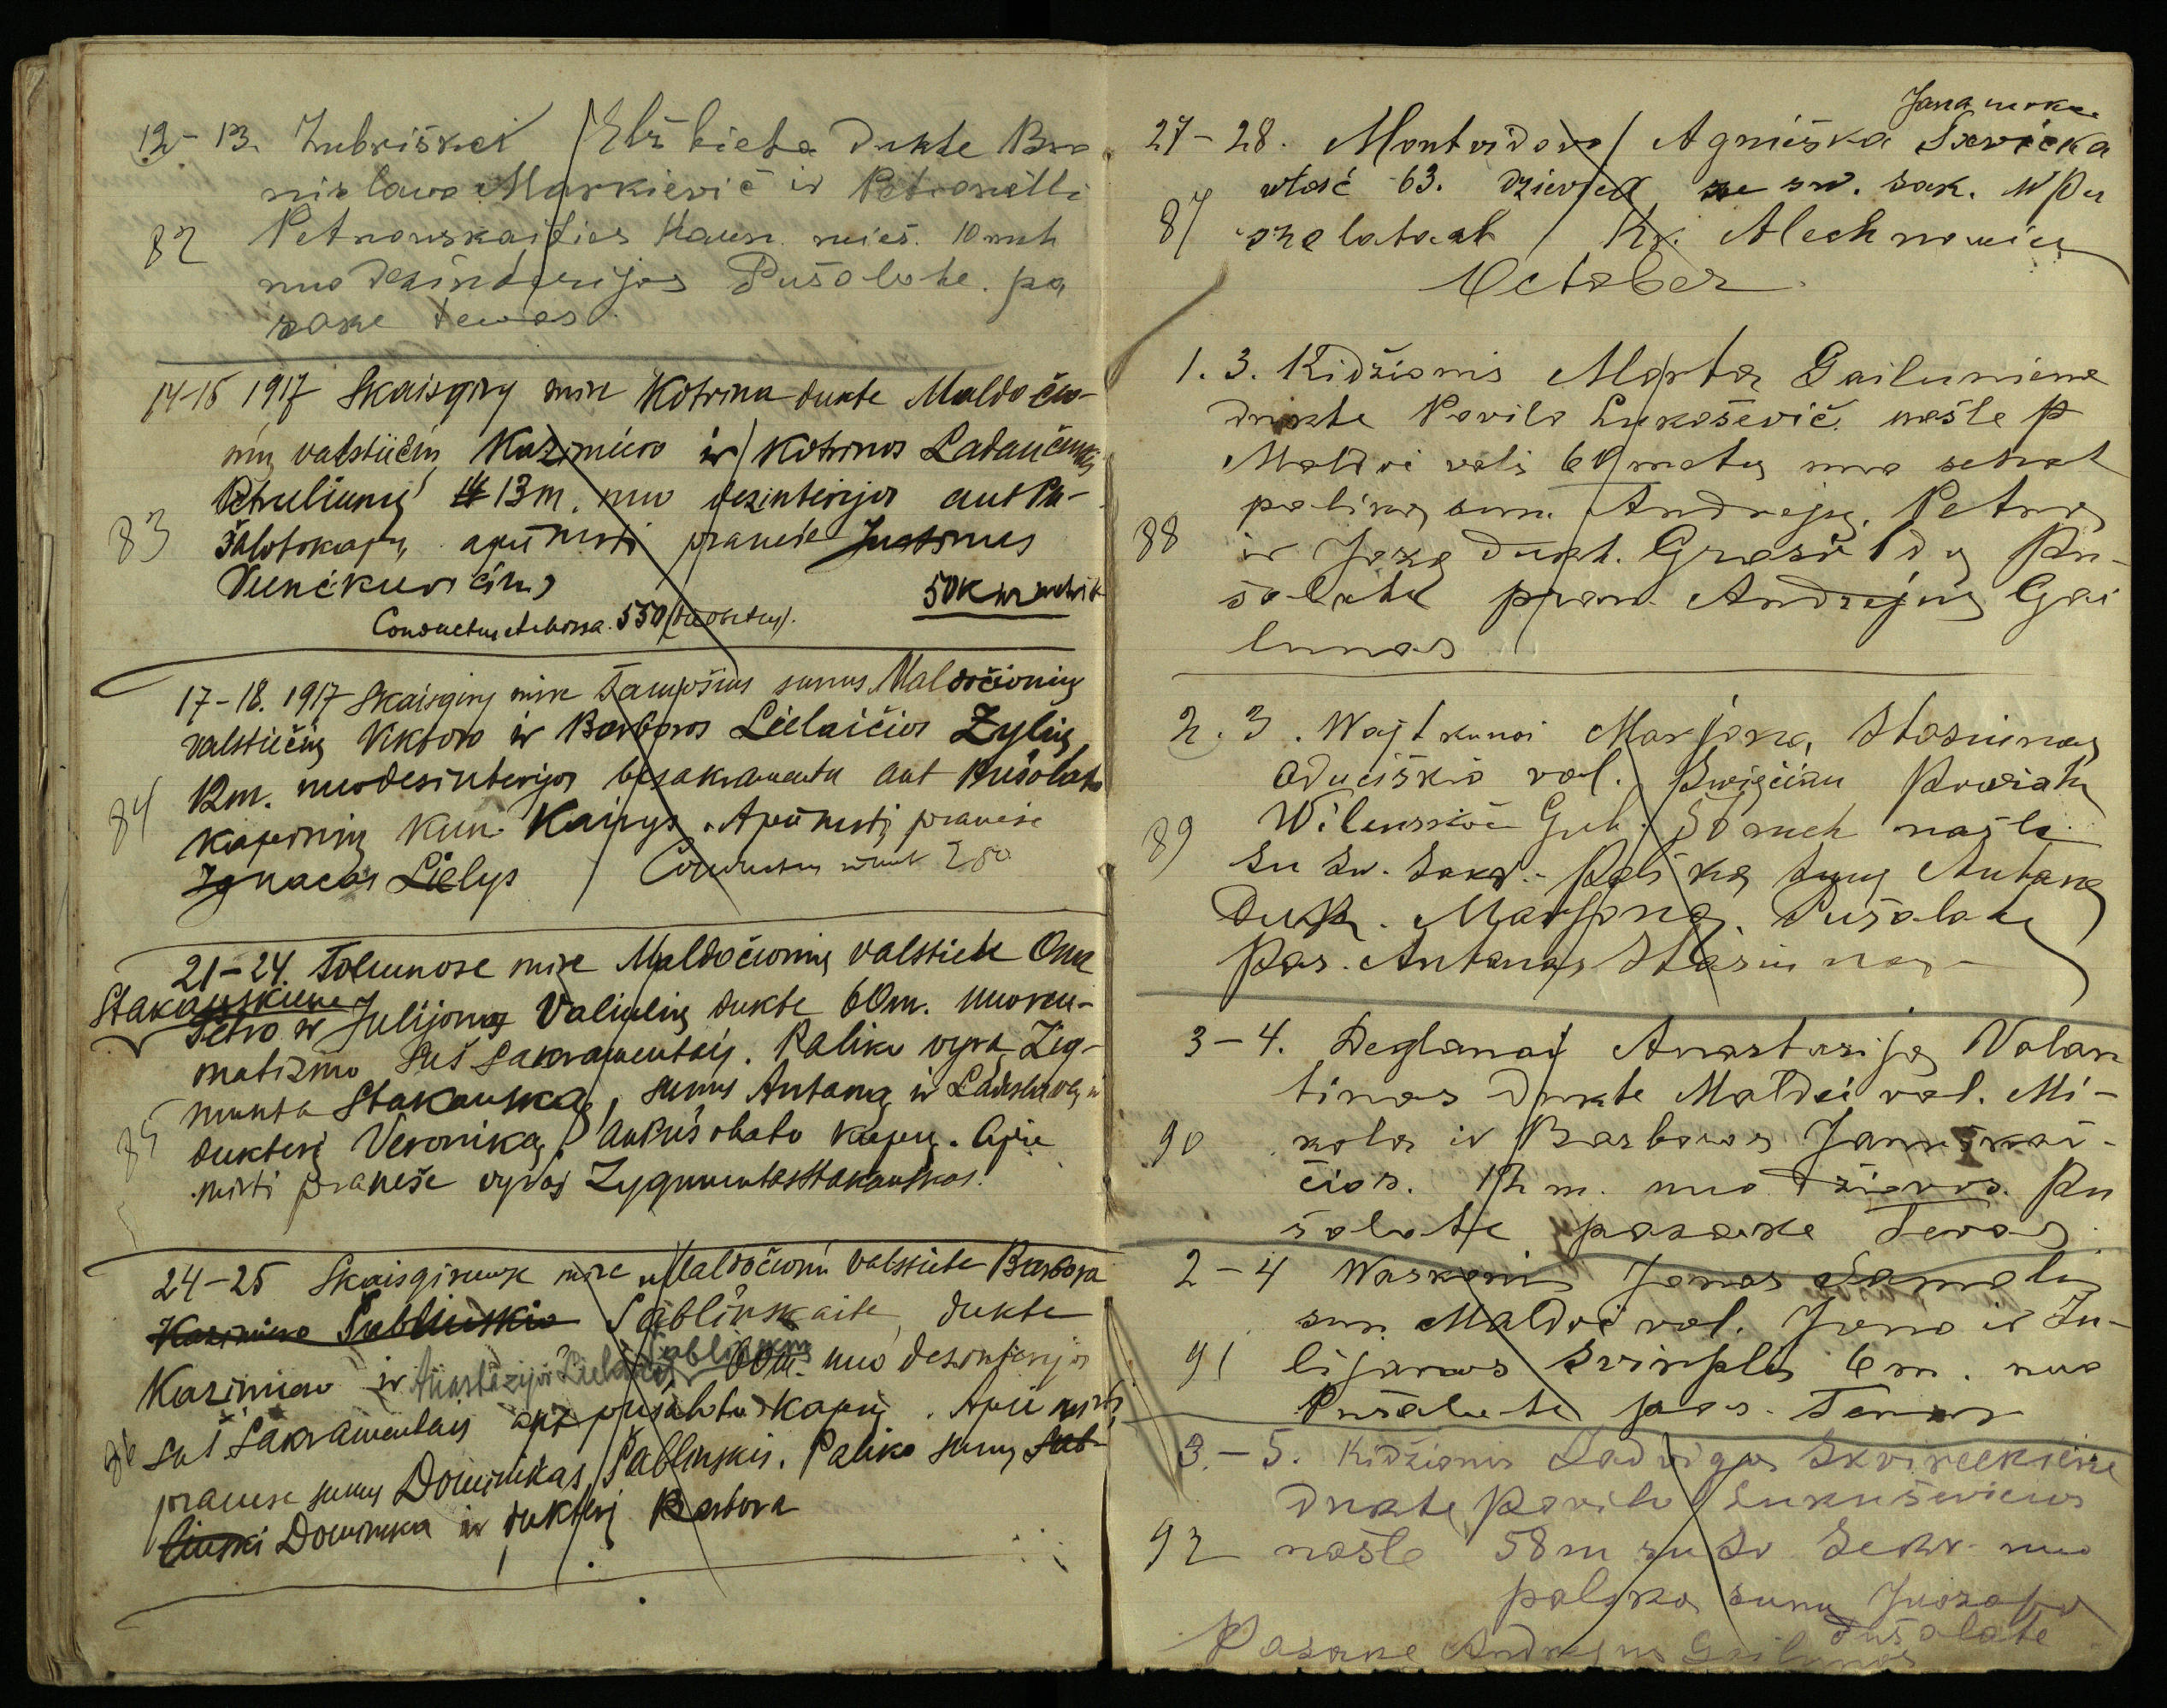 12-13. Zubriškei Elžbieta dukte Bro
nislawo Markievič ir Petronelli
82 Petrowskaitios Kaun. mies. 10 met
nuo dezinterijos Pušolote. pa
sake tewas.
14-15 1917 Skaisgiry mire Kotrina dukte Maldočio-
nių valstiečių Kazimiero ir Kotrinos Ladaučinkų
Petruliunų 13m. nuo dezinterijos ant Pu-
83 šaloto kapų. apie mirti pranešė Justinas
50K
Conductus et 550
17-18. 1917 Skaisgiry mire Tamošius sunus Maldočionių
valstiečių Viktoro ir Barboros Lielaičios Zylių
12m. nuo desinterijos be sakramentu ant Pušoloto
84 kapinių kun. Kairys. Apie mirtį pranešė
Ignacas Lielys Conductus 250
21-24. Toliunose mire Maldočionių valstietė Ona
Stakauskiene
Petro ir Julijonos Valiulių dukte 60m. nuo reu-
matizmo su š sakramentais. Paliko vyrą Zig-
munta Stakauska, sunus Antaną ir Ladislavą ir
85 dukterį Veroniką, ant Pušoloto kapų. Apie
mirti pranešė vyras Zygmuntas Stakauskas.
24-25 Skaisgiriuose mire Maldočionių valstietė Barbora
Kazimiero Sablinskio Sablinskaite, dukte
Kazimiero ir Anastazijos 60m. nuo desinterijos
86 su š Sakramentais ant pušaloto kapų. Apie mirti
pranešė sunus Dominikas Sablinskis. Paliko sunų Sab-
linski Dominika ir dukterį Barbora
27-28. Montvidowo Agnieška Sawicka
włość 63. ze sw. sak. w Pu
87 szolatach Ks. Alechnowicz
October
1. 3. Kidžionis Morta Gailuniene
dukte Povilo Lukoševič. našle p
Maldei vals 60 metų nuo
paliko sun. Andrejų, Petrą
88 ir Jozą dukt. Grasildą Pu-
šolote pran. Andrejus Gai
lunas
2. 3. Wajtkunai Marjona Stasiunas
Aduciškio val. Swięcian Powiatu
89 Wilenskoi Gub. 50 met našle
su sw. sakr. Paliko sunų Antaną
Dukt. Marjoną. Pušalate
Pas. Antanas Stasiunas
3-4. Deglanai Anastasija Valan
tinas dukte Maldei val. Mi-
90 kola ir Barboros Januškai-
čios. 12 m. nuo džiovos. Pu
šolote pasake Tewas
2-4 Waskonis Jonas Samolis
sun. Maldei val. Jono ir Ju-
91 lijonos Svirplis 6 m. nuo
Pušalote pas. Tewas
3.-5. Kidžionis Ladviga Skvireckiene
dukte Povilo Lukuševicius
92 našle 58 m su Sv Sakr. nuo
paliko sunų Juozapa
Pušalote
Pasake Andrejus Gailunas